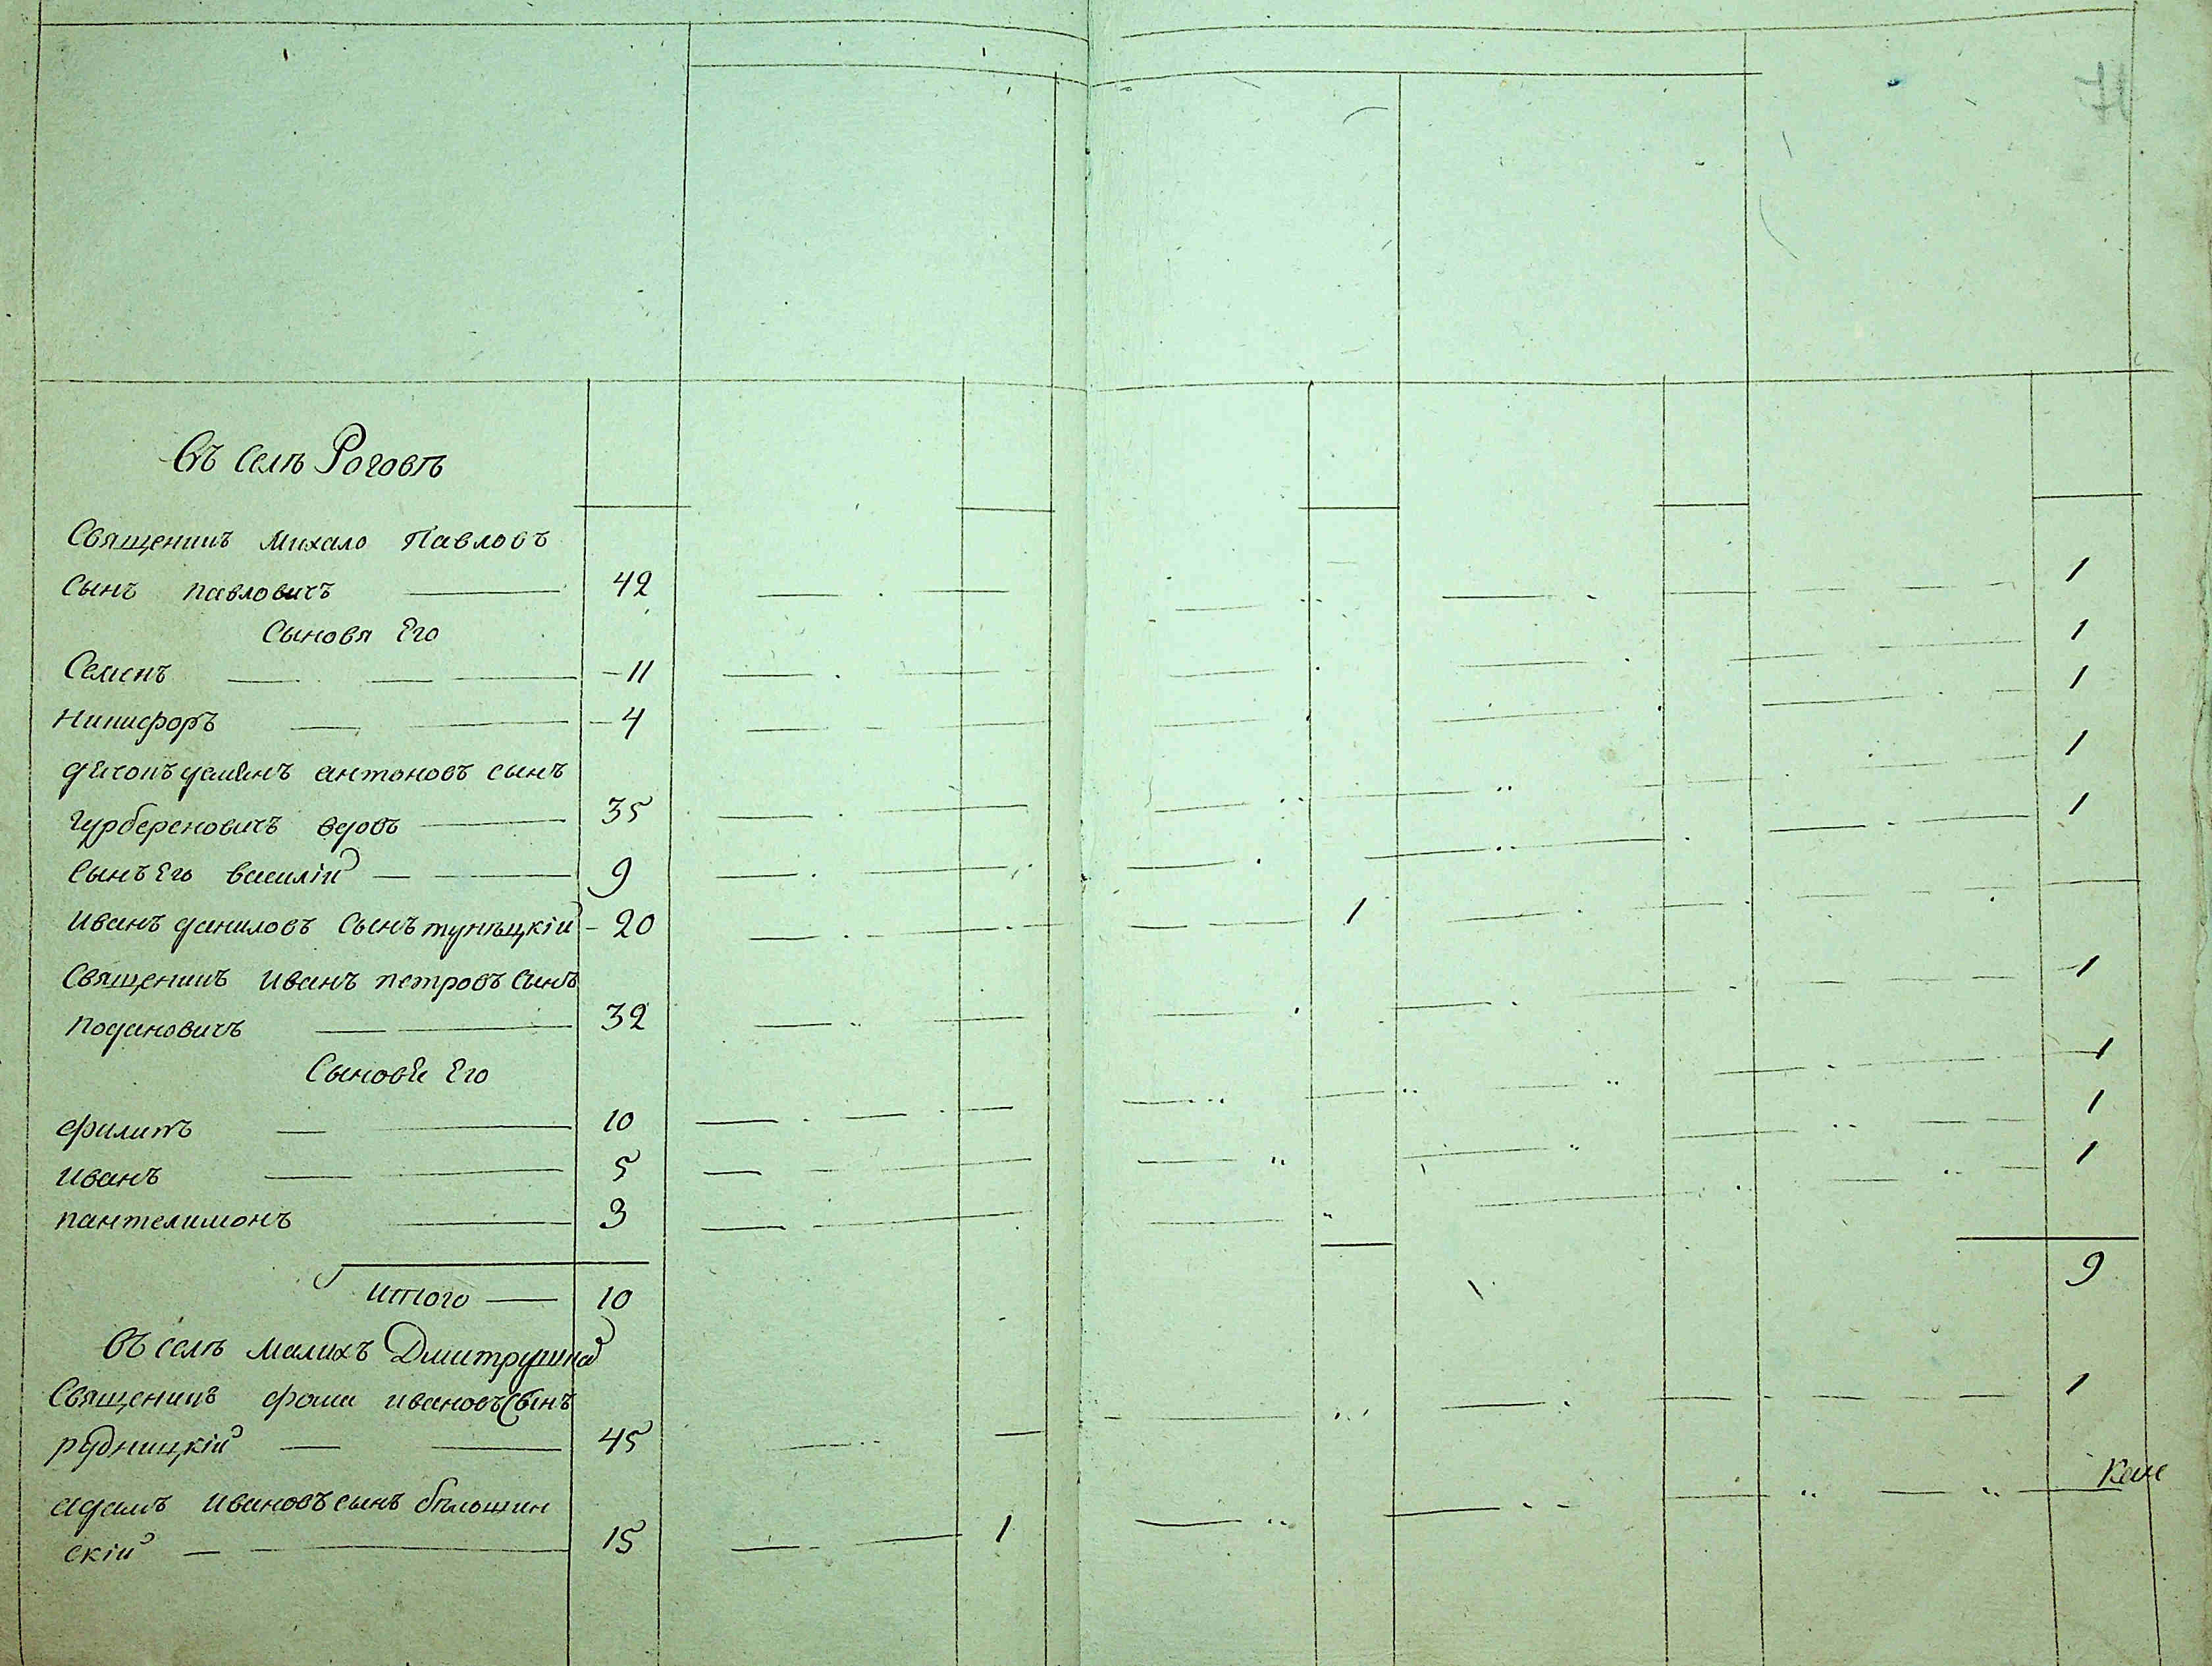 Въ селѣ Роговѣ
Священикъ Михало Павловъ
Сынъ павловичъ 42 1
Сыновя Его 1
Семенъ 11 1
Никифоръ 4
дячокъ демянъ антоновъ сынъ 1
вдовъ 35 1
Сынъ Его василій 9
Иванъ даниловъ Сынъ 20 1
Священикъ Иванъ петровъ Сынъ 1
32
Сыновѣ Его 1
филипъ 10 1
иванъ 5 1
пантелимонъ 3
итого 10 9
Въ селѣ малихъ Дмитрушка
Священикъ фома ивановъ Сынъ 1
рудницкій 45
адамъ ивановъ сынъ бѣлошин
скій 15 1